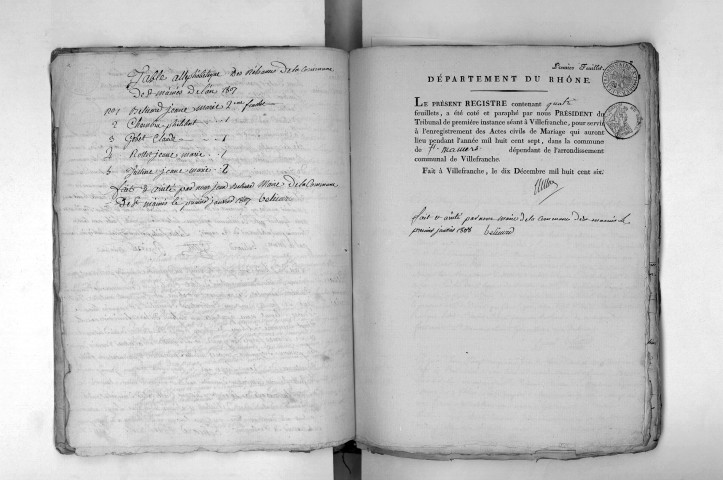 Table alphabétique des Naissances de la Commune
de St mamés de l'an 1807
No 1 Beluard jeanne marie 2me feuillet
2 Chanrion philibert 1
3 Gobet Claude 1
4 Rottet jeanne marie 1
5 jeanne marie 2
fait & arrêté par nous jean Beluard Maire de la Commune
De St mamés le premier janvier 1807 beluard
Premier Feuillet
DÉPARTEMENT DU RHÔNE.
LE PRÉSENT REGISTRE contenant quatre
feuillets, a été coté et paraphé par nous PRÉSIDENT du
Tribunal de première instance séant à Villefranche, pour servir
à l'enregistrement des Actes civils de Mariage qui auront
lieu pendant l'année mil huit cent sept, dans la commune
de St mamers dépendant de l'arrondissement
communal de Villefranche.
Fait à Villefranche, le dix Décembre mil huit cent six.
fait & arrêté par nous maire de la Commune de St mamés le
premier janvier 1808 beluard